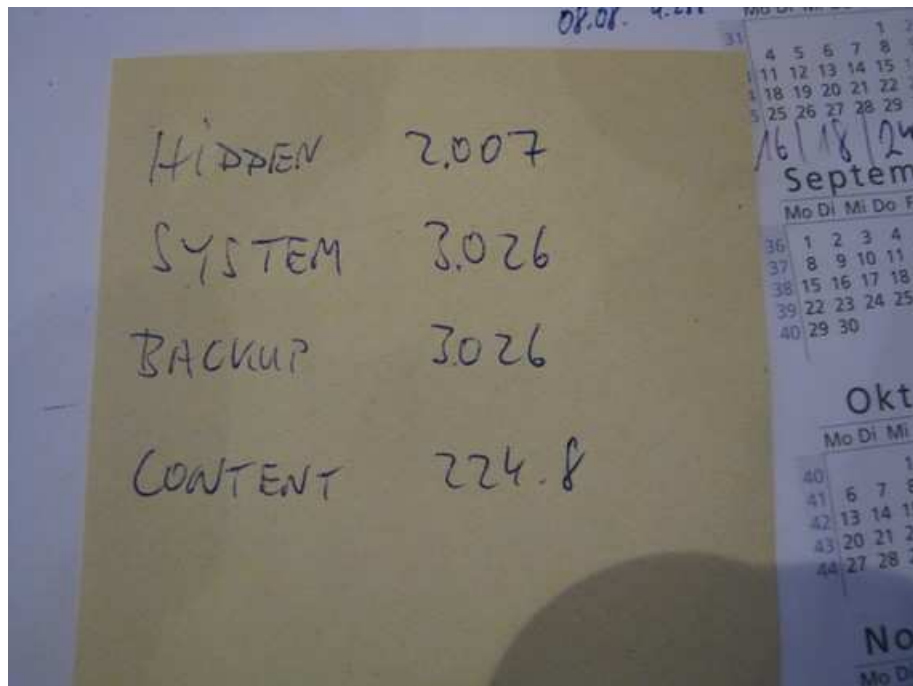 08.08.
HIDDEN 2.007
SYSTEM 3.026
BACKUP 3.026
CONTENT 224.8
31
4 5 6 7 8
11 12 13 14 15
18 19 20 21 22
25 26 27 28 29
16 | 18 | 24
Septem
Mo Di Mi Do F
36 1 2 3 4
37 8 9 10 11
38 15 16 17 18
39 22 23 24 25
40 29 30
Okt
Mo Di Mi
40
41 6 7 8
42 13 14
43 20 21
44 27 28
No
Mo Di